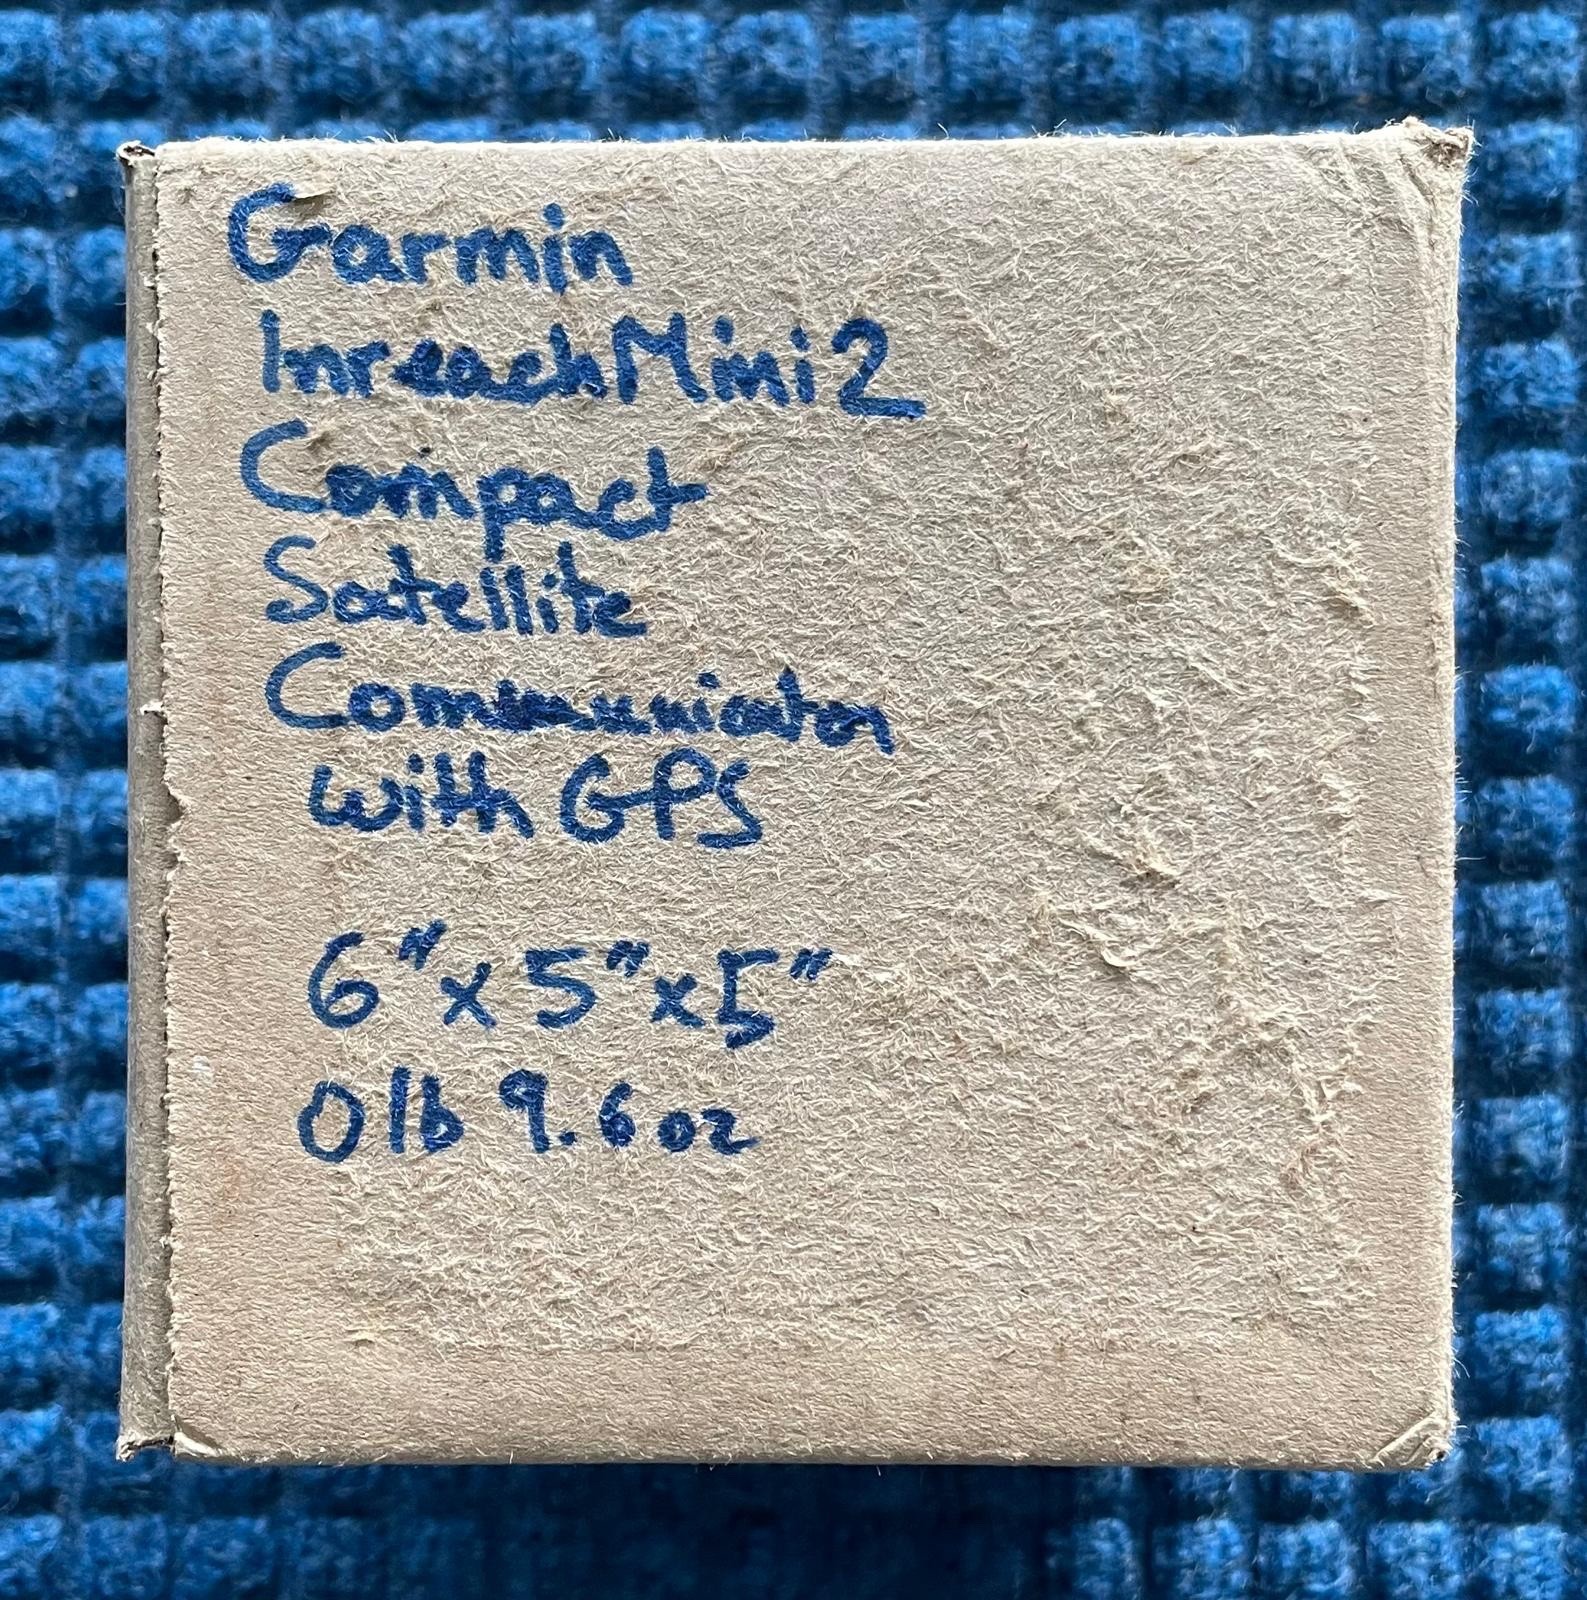 Garmin
Inreach Mini 2
Compact
Satellite
Communicator
with GPS
6" x 5" x 5"
0 lb 9.6 oz